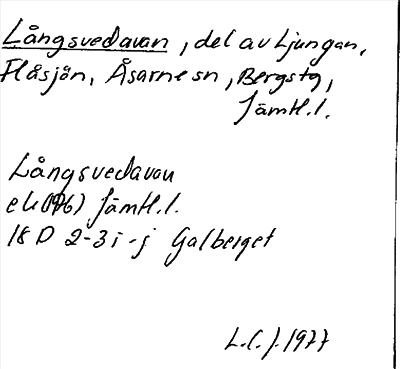 Långsvedavan, del av Ljungan,
Flåsjön, Åsarne sn, Bergs tg,
Jämtl.l.
Långsvedavan
ek (76) Jämtl.l.
18 D 2-3 i-j Galberget
L.C.J. 1977